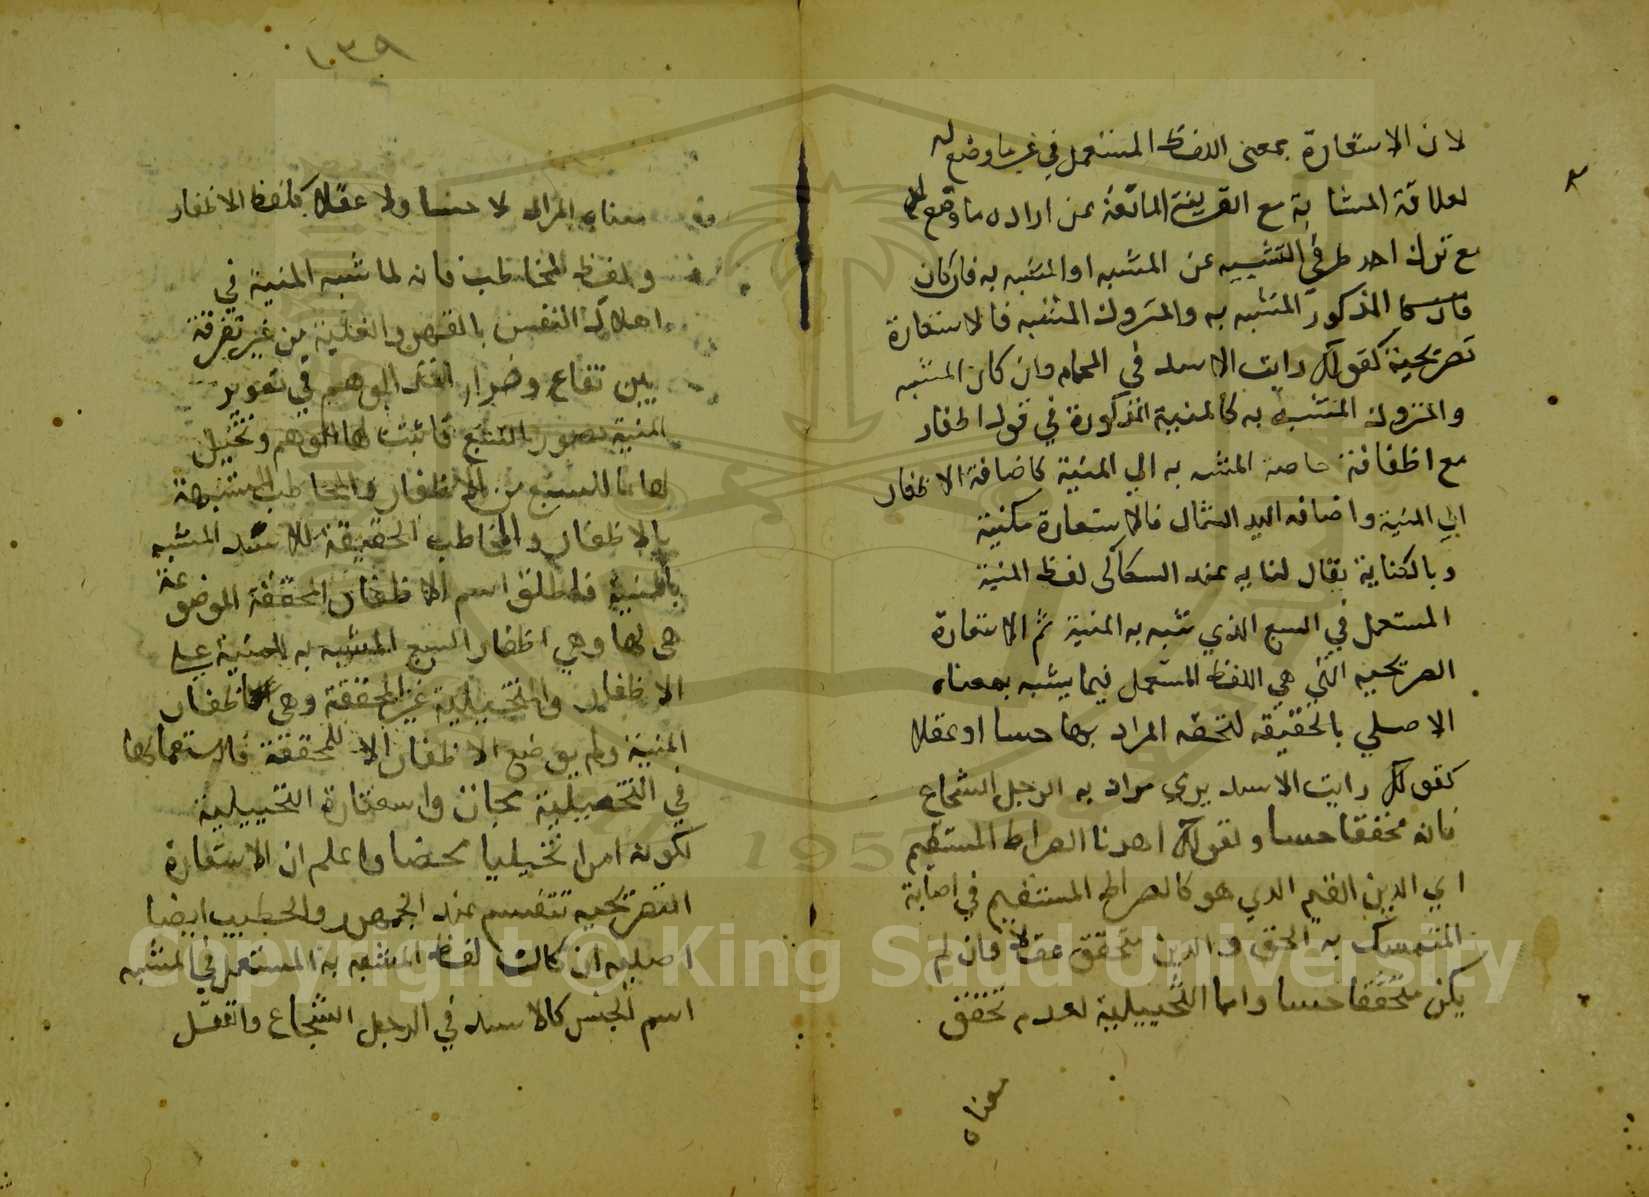 لان الاستعارة بمعنى اللفظ المستعمل في غير ما وضع له
لعلاقة المشابهة مع القرينة المانعة عن ارادة ما وضع له
مع ترك احد طرفي التشبيه عن المشبه او المشبه به فان كان
المذكور المشبه به والمتروك المشبه فالاستعارة
تصريحية كقولك رايت الاسد في الحمام وان كان المشبه
والمتروك المشبه به كالمنية المذكورة في قوله اظفار
مع خاصة المشبه به الي المنية كاضافة الاظفار
الي المنية واضافه اليد الشمال فالاستعارة مكنية
وبالكناية يقال لنا به عند السكاكى لفظ المنية
المستعمل في السبع الذي شبه به المنية ثم الاستعارة
الصريحيه التي هي اللفظ المستعمل فيما يشبه بمعناه
الاصلي بالحقيقه لتحقه المراد بها حسا او عقلا
كقولك رايت الاسد يري مراد به الرجل الشجاع
فانه محققا حسا ولقولك اهدنا الصراط المستقيم
اي الدين القيم الذي هو كالصراط المستقيم في اصابة
المتمسك به الحق والدين متحقق عقلا فان لم
يكن متحققا حسا واما التخييلية لعدم تحقق
معناه
معناه المراد لا حسا ولا عقلا كلفظ الاظفار
ولفظ المخاطب فانه لما شبه المنية في
اهلاك النفس بالقهر والغلبة من غير تفرقة
بين نفاع وضرار اخذ الوهم في تصوير
المنية بصورة السبع فاثبت لها الوهم وتخييل
لها ما للسبع من الاظفار والمخاطب المشبهة
بالاظفار والمخاطب الحقيقة للاسد المشبه
بالمنية فاطلق اسم الاظفار المحققة الموضوعة
هى لها وهي اظفار السبع المشبه به المنية على
الاظفار والتخييلية غير المحققة وهى اظفار
المنية ولم يوضع الاظفار الا للمحققة فاستعمالها
في التخييلية مجاز واستعارة التخييلية
لكونه امرا تخيليا محضا واعلم ان الاستعارة
التصريحيه تنقسم عند الجمهور والخطيب ايضا
اصليه ان كانت لفظ المشبه به المستعمل في المشبه
اسم الجنس كالاسد في الرجل الشجاع والقتل
Copyright © King Saud University
1957